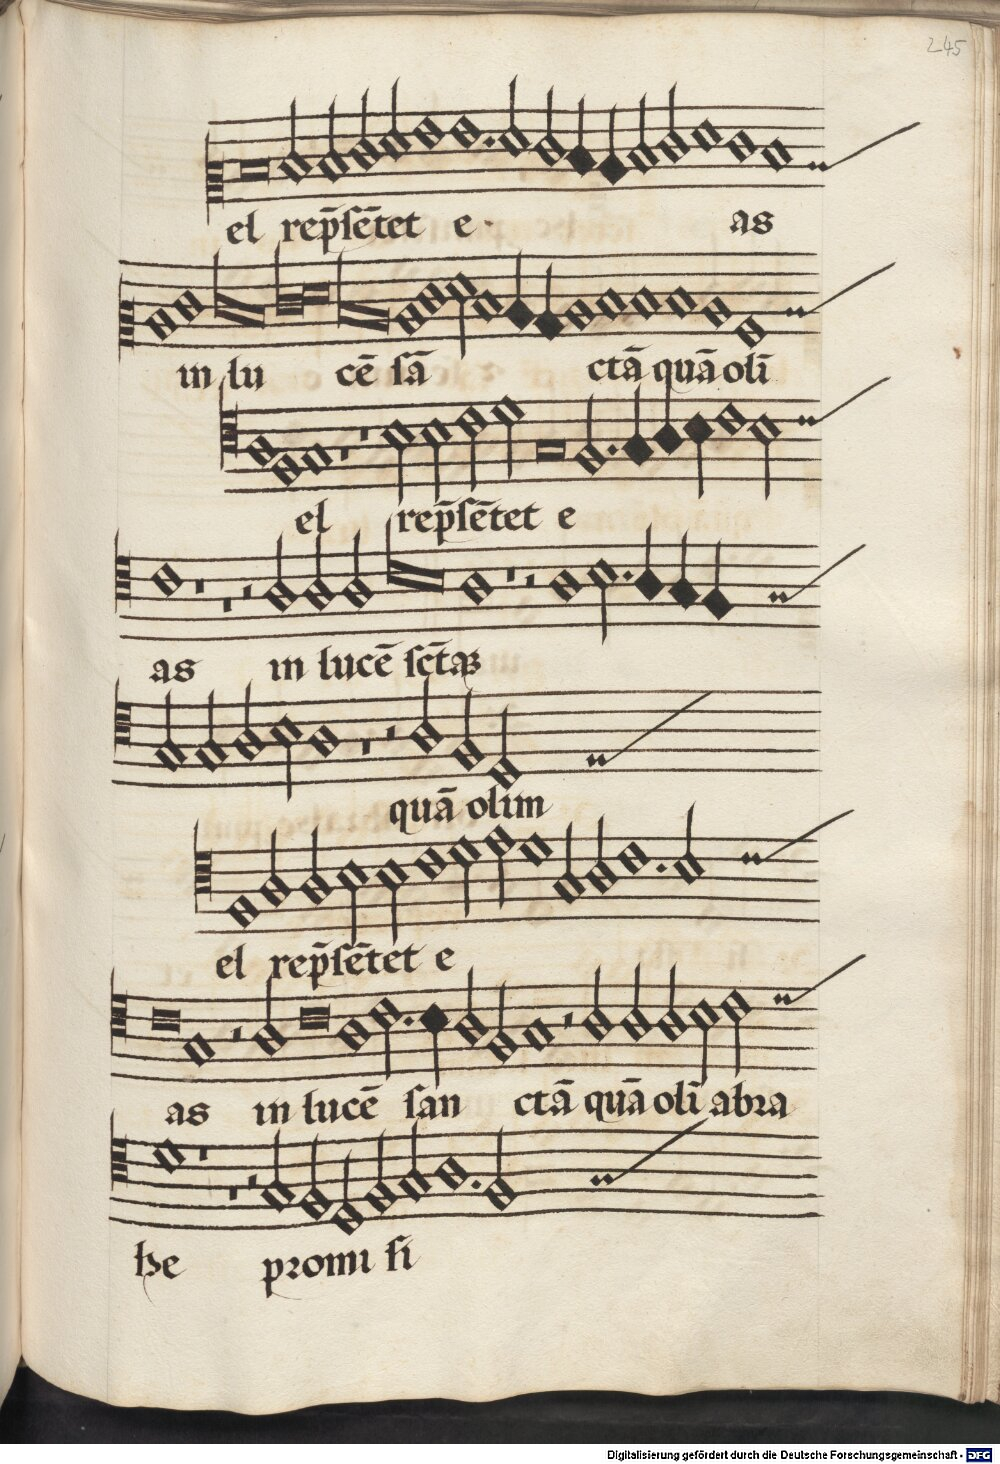 245
el rep̄sētet e as
in lu cē ſā ctā quā olī
el rep̄sētet e
as in lucē ſct̄aꝫ
quā olim
el rep̄sētet e
as in lucē ſan ctā quā olī abꝛa
he pꝛomi ſi
Digitalisierung gefördert durch die Deutsche Forschungsgemeinschaft - DFG